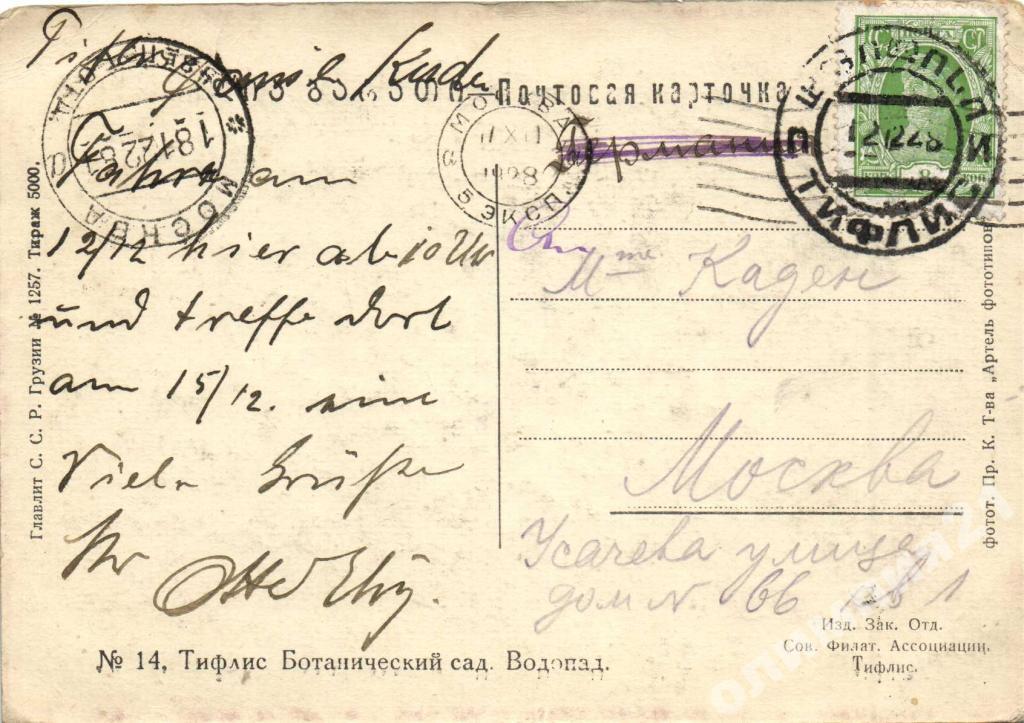 Почтовая карточка
Германия
Mme Каден
Москва
Усачева улица
дом N. 66 кв 1
am
12/12 hier ab 10 Uhr
und treffe dort
am 15/12. ein
Viele Grüße
Ihr
Otto
№ 14, Тифлис Ботанический сад. Водопад.
Изд. Зак. Отд.
Сов. Филат. Ассоциации,
Тифлис.
Главлит С. С. Р. Грузии № 1257. Тираж 5000.
фотот. Пр. К. Т-ва „Артель фототипов
МОСКВА
18.12.28
МОСКВА
17 XII
1928
5 ЭКСП.
ТИФЛИС
12.12.28
олимпия21